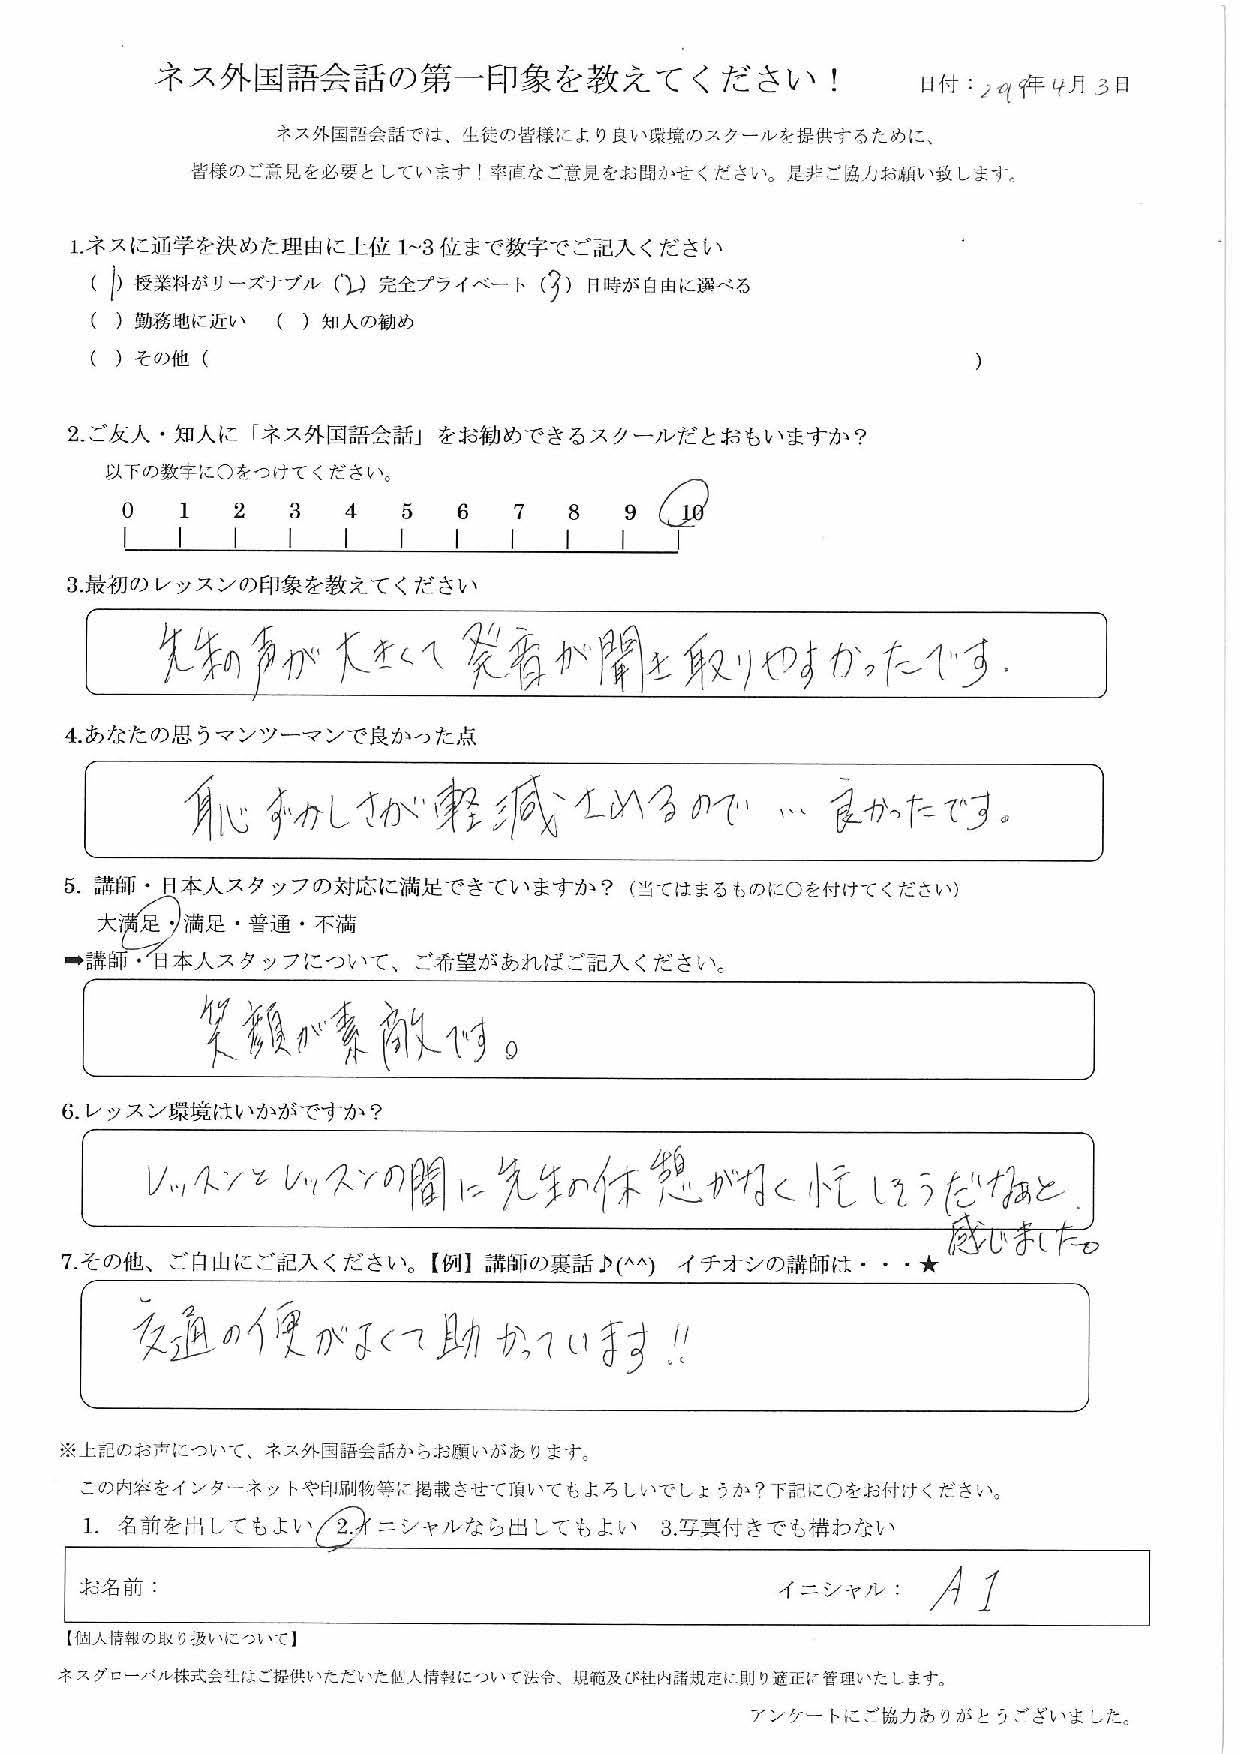 ネス外国語会話の第一印象を教えてください！
日付：2019年4月3日
ネス外国語会話では、生徒の皆様により良い環境のスクールを提供するために、
皆様のご意見を必要としています！率直なご意見をお聞かせください。是非ご協力お願い致します。
1.ネスに通学を決めた理由に上位1~3位まで数字でご記入ください
（1）授業料がリーズナブル（2）完全プライベート（3）日時が自由に選べる
（ ）勤務地に近い （ ）知人の勧め
（ ）その他（ ）
2.ご友人・知人に「ネス外国語会話」をお勧めできるスクールだとおもいますか？
以下の数字に○をつけてください。
0 1 2 3 4 5 6 7 8 9 10
3.最初のレッスンの印象を教えてください
先生の声が大きくて発音が聞き取りやすかったです.
4.あなたの思うマンツーマンで良かった点
恥ずかしさが軽減されるので…良かったです。
5. 講師・日本人スタッフの対応に満足できていますか？（当てはまるものに○を付けてください）
大満足・満足・普通・不満
➡講師・日本人スタッフについて、ご希望があればご記入ください。
笑顔が素敵です。
6.レッスン環境はいかがですか？
レッスンとレッスンの間に先生の休憩がなく忙しそうだなぁと
感じました。
7.その他、ご自由にご記入ください。【例】講師の裏話♪(^^) イチオシの講師は・・・★
交通の便がよくて助かっています!!
※上記のお声について、ネス外国語会話からお願いがあります。
この内容をインターネットや印刷物等に掲載させて頂いてもよろしいでしょうか？下記に○をお付けください。
1. 名前を出してもよい 2.イニシャルなら出してもよい 3.写真付きでも構わない
お名前： イニシャル： A I
【個人情報の取り扱いについて】
ネスグローバル株式会社はご提供いただいた個人情報について法令、規範及び社内諸規定に則り適正に管理いたします。
アンケートにご協力ありがとうございました。